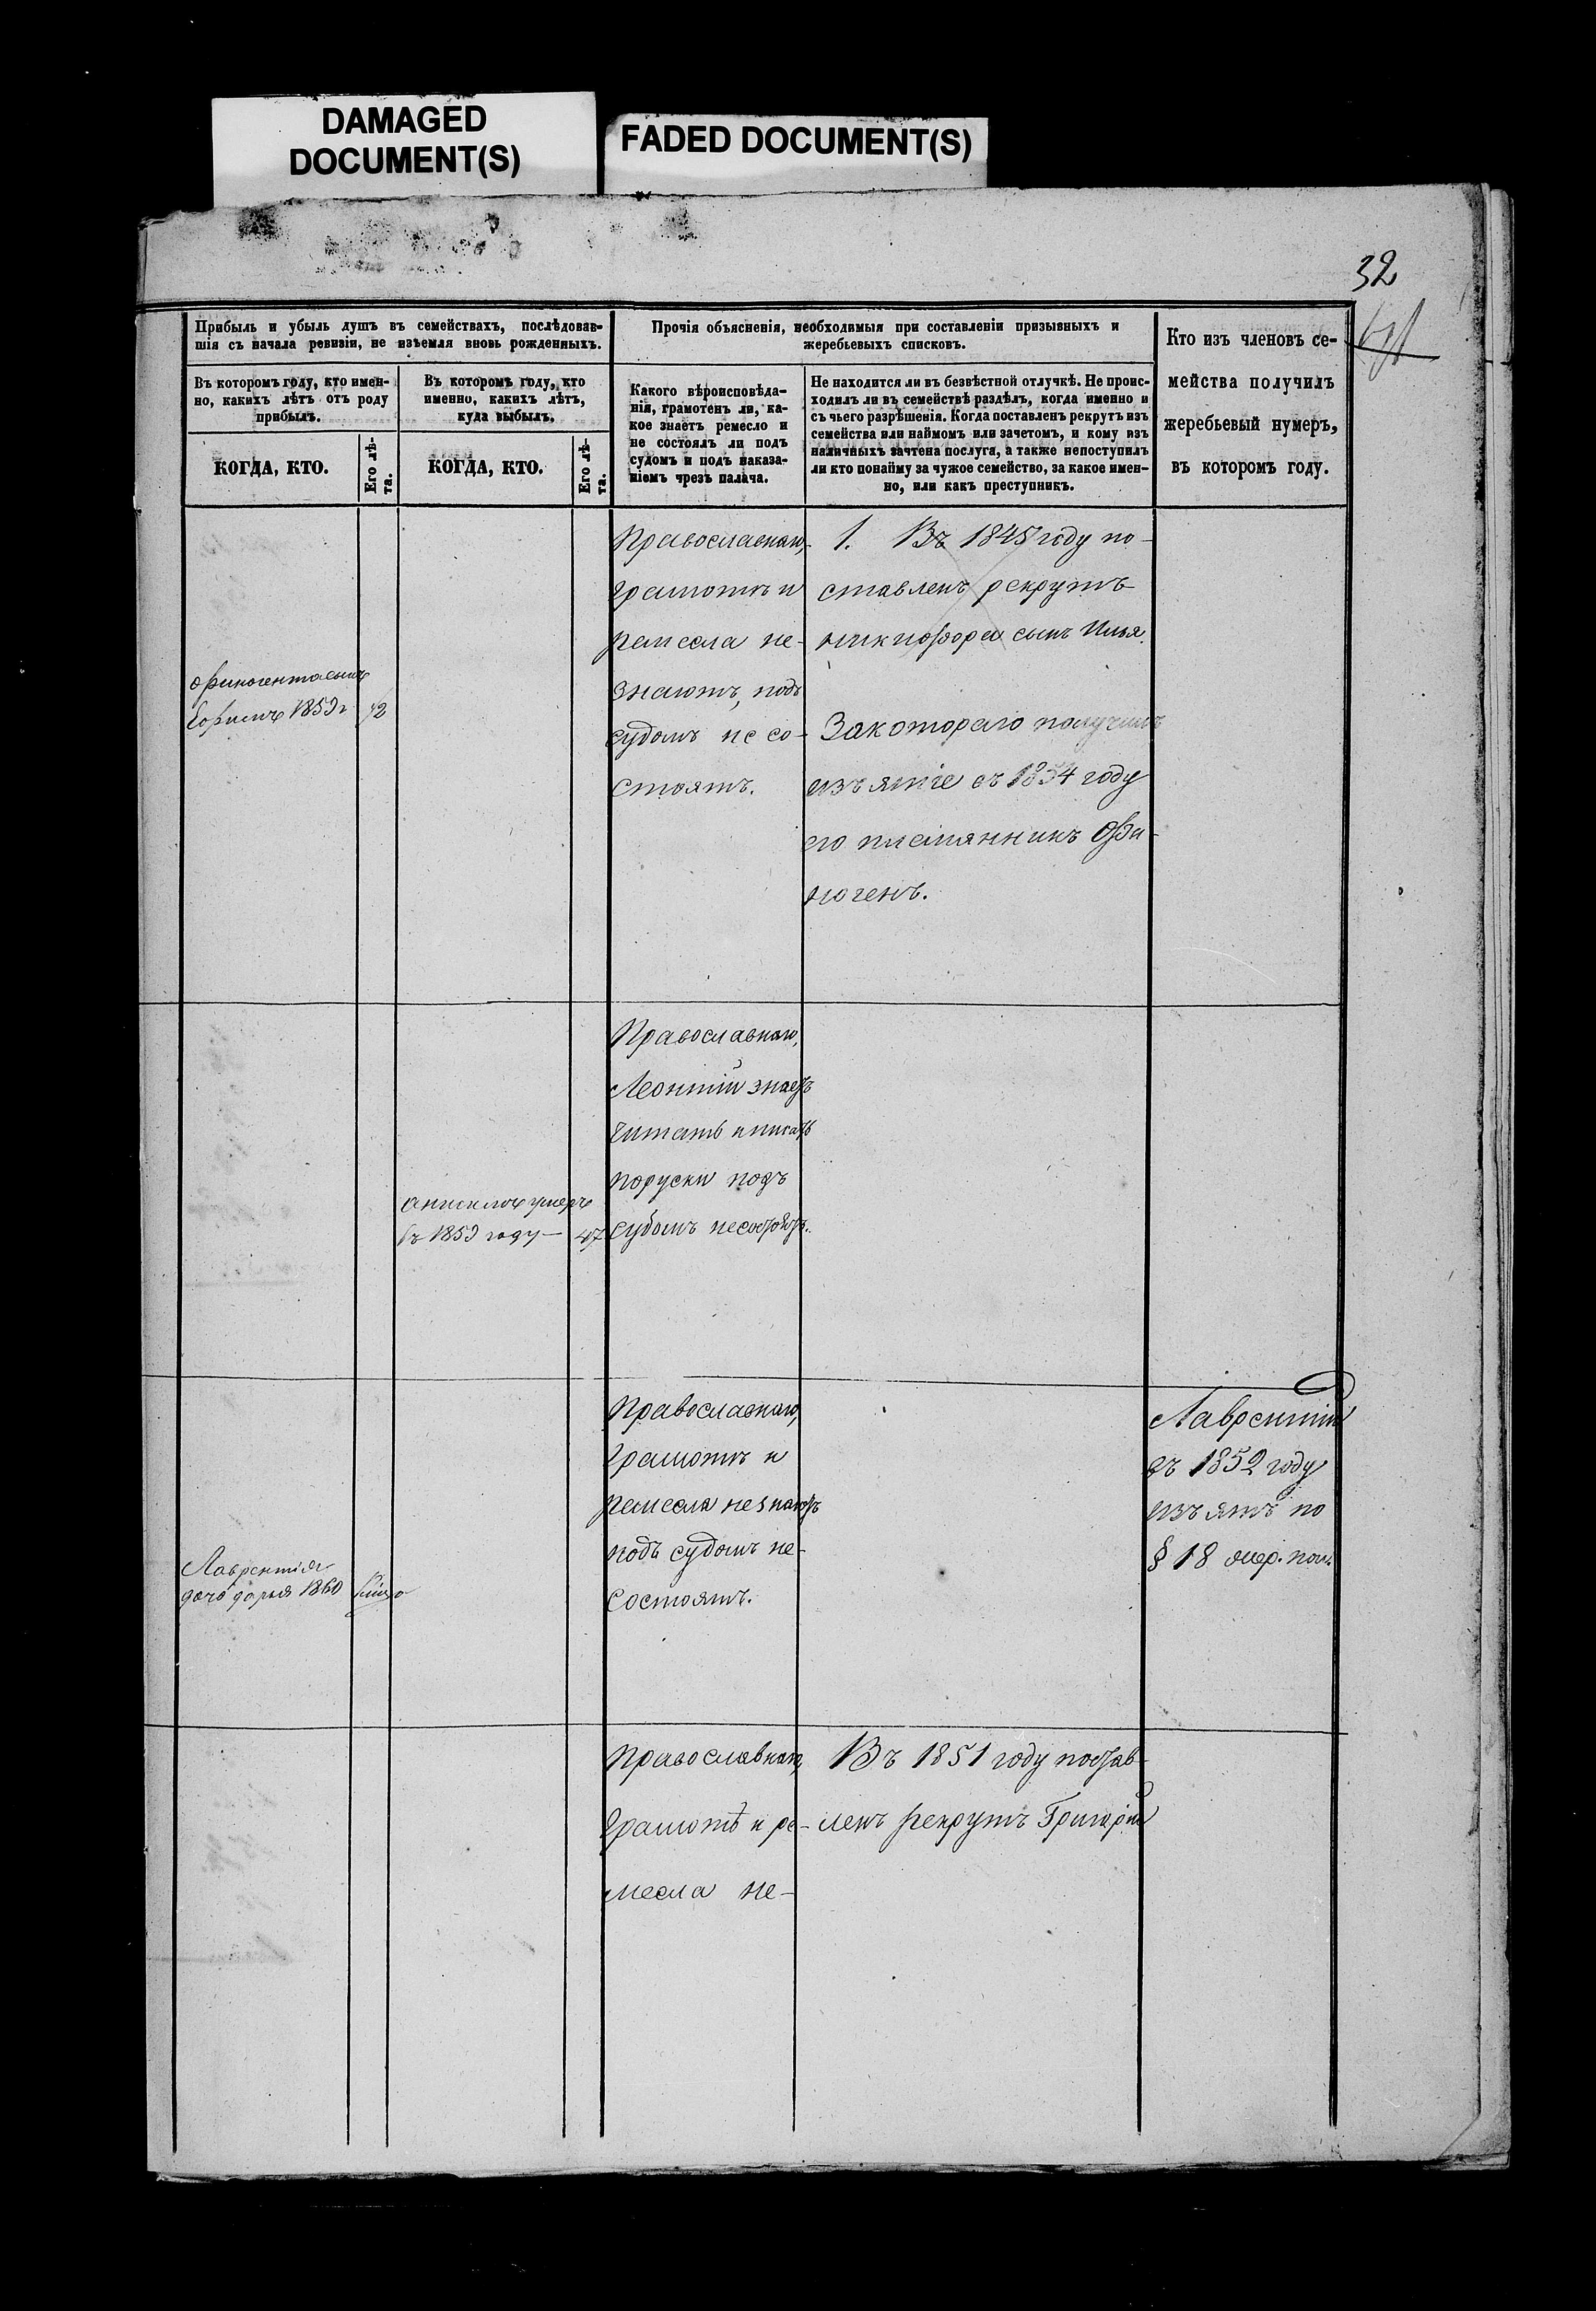 DAMAGED
DOCUMENT(S)
FADED DOCUMENT(S)
32
Прибыль и убыль душъ въ семействахъ, послѣдовав-
шія съ начала ревизіи, не изъемля вновь рожденныхъ.
Прочія объясненія, необходимыя при составленіи призывныхъ и
жеребьевыхъ списковъ.
Кто изъ членовъ се-
мейства получилъ
жеребьевый нумеръ,
въ которомъ году.
Въ которомъ году, кто имен-
но, какихъ лѣтъ отъ роду
прибылъ.
Въ которомъ году, кто
именно, какихъ лѣтъ,
куда выбылъ.
Какого вѣроисповѣда-
нія, грамотенъ ли, ка-
кое знаетъ ремесло и
не состоялъ ли подъ
судомъ и подъ наказа-
ніемъ чрезъ палача.
Не находится ли въ безвѣстной отлучкѣ. Не проис-
ходилъ ли въ семействѣ раздѣлъ, когда именно и
съ чьего разрѣшенія. Когда поставленъ рекрутъ изъ
семейства или наймомъ или зачетомъ, и кому изъ
наличныхъ зачтена послуга, а также непоступилъ
ли кто понайму за чужое семейство, за какое имен-
но, или какъ преступникъ.
КОГДА, КТО.
Его лѣ-
та.
КОГДА, КТО.
Его лѣ-
та.
сынъ
1859г
Православнаго,
грамотѣ и
ремесла не-
знаютъ, подъ
судомъ не со-
стоятъ.
1. Въ 1845 году по-
ставленъ рекрутъ
никифора сынъ Илья.
Закотораго получилъ
изъятіе въ 1854 году
его племянникъ Офи-
ногенъ.
умеръ
въ 1859 году — 47
Православнаго,
Леонтій знаетъ
читать и писать
поруски подъ
судомъ несостоятъ.
Лаврентія
дочь дарья 1860
Православнаго,
грамотѣ и
ремесла незнаютъ
подъ судомъ не-
состоятъ.
Лаврентій
въ 1852 году
изъятъ по
§ 18
Православнаго,
грамотѣ и ре-
месла не-
Въ 1851 году постав-
ленъ рекрутъ Григорій